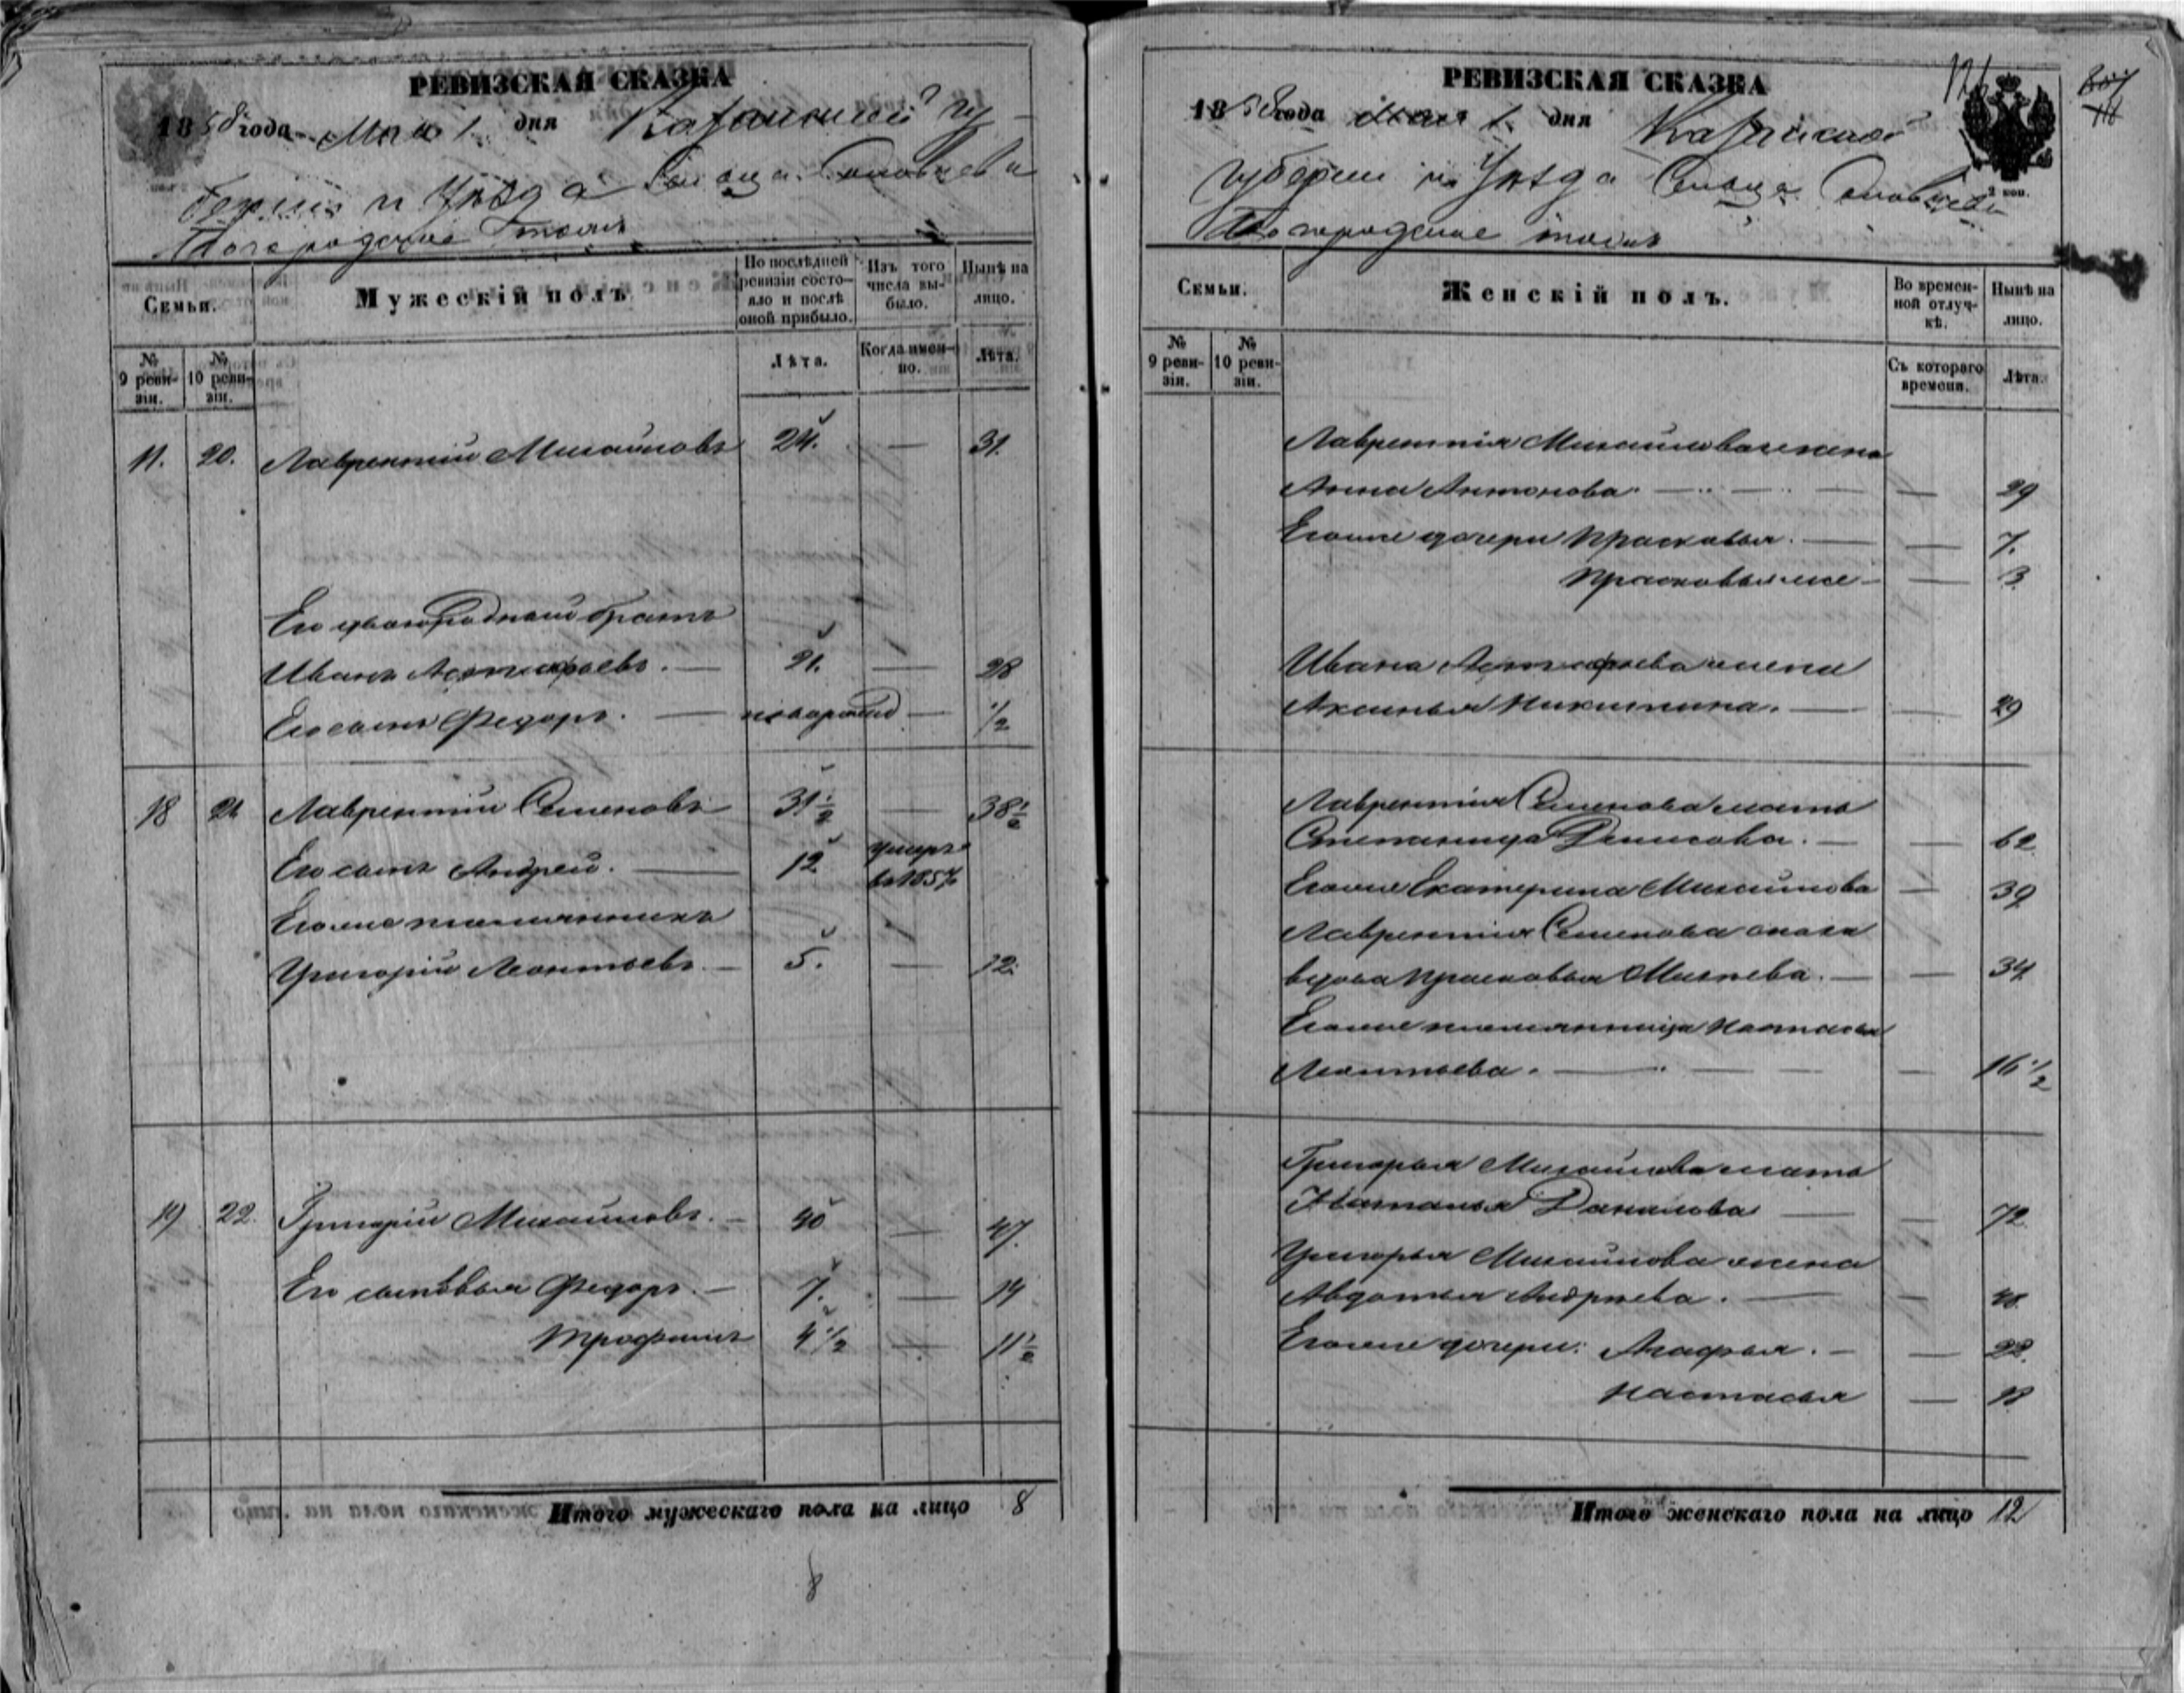 РЕВИЗСКАЯ СКАЗКА
1858 года Мая 1 дня Казанской гу-
берніи и Уѣзда Сельца
Богородское тожъ
Семьи.
Мужескій полъ.
По послѣдней ревизіи состояло и послѣ оной прибыло.
Изъ того числа выбыло.
Нынѣ на лицо.
№ 9 ревизіи.
№ 10 ревизіи.
Лѣта.
Когда именно.
Лѣта.
11. 20. Лаврентій Михайловъ 24. — 31.
Его двоюродный братъ
Иванъ Астафьевъ. — 21. — 28
Его сынъ Федоръ. — новорожд — 1/2
18 21 Лаврентій Семеновъ 31 1/2 — 38 1/2
Его сынъ Андрей. — 12 умеръ
въ 1857
Его же племянникъ
Григорій Леонтьевъ. — 5. — 12.
19 22. Григорій Михайловъ. — 40 — 47.
Его сыновья Федоръ. — 7. — 14
Трофимъ 4 1/2 — 11 1/2
Итого мужескаго пола на лицо 8
8
РЕВИЗСКАЯ СКАЗКА
1858 года Мая 1. дня Казанской
губерніи и Уѣзда Сельца
Богородское тожъ
2 коп.
Семьи.
Женскій полъ.
Во временной отлучкѣ.
Нынѣ на лицо.
№ 9 ревизіи.
№ 10 ревизіи.
Съ котораго времени.
Лѣта.
Лаврентія Михайлова жена
Анна Антонова — — 29
Его же дочери Прасковья. — — 7.
Прасковья же — — 3
Ивана Астафьева жена
Аксинья Никитина. — — 29
Лаврентія Семенова мать
Степанида Денисова. — — 62
Его же Екатерина Михайлова — 39
Лаврентія Семенова сноха
вдова Прасковья Матвѣева. — — 34
Его же племянница Настасья
Леонтьева. — — — 16 1/2
Григорья Михайлова мать
Наталья Данилова — — 72
Григорья Михайлова жена
Авдотья Андрѣева. — — 48
Его же дочери: Агафья. — — 22.
Настасья — 18
Итого женскаго пола на лицо 12